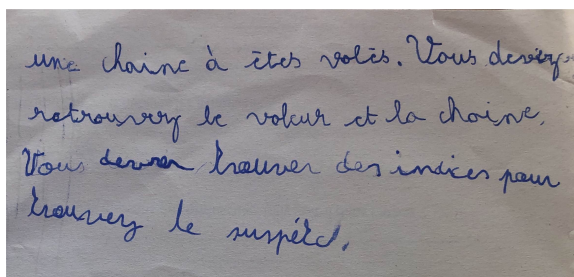 une chaine à êtes volés. Vous devez
retrouvez le voleur et la chaine.
Vous devez trouver des indices pour
trouvez le suspéct.